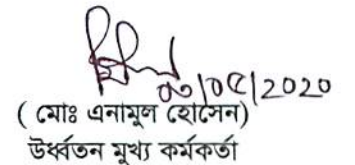 ০৩/০৫/2020
( মোঃ এনামুল হোসেন)
উর্ধ্বতন মুখ্য কর্মকর্তা